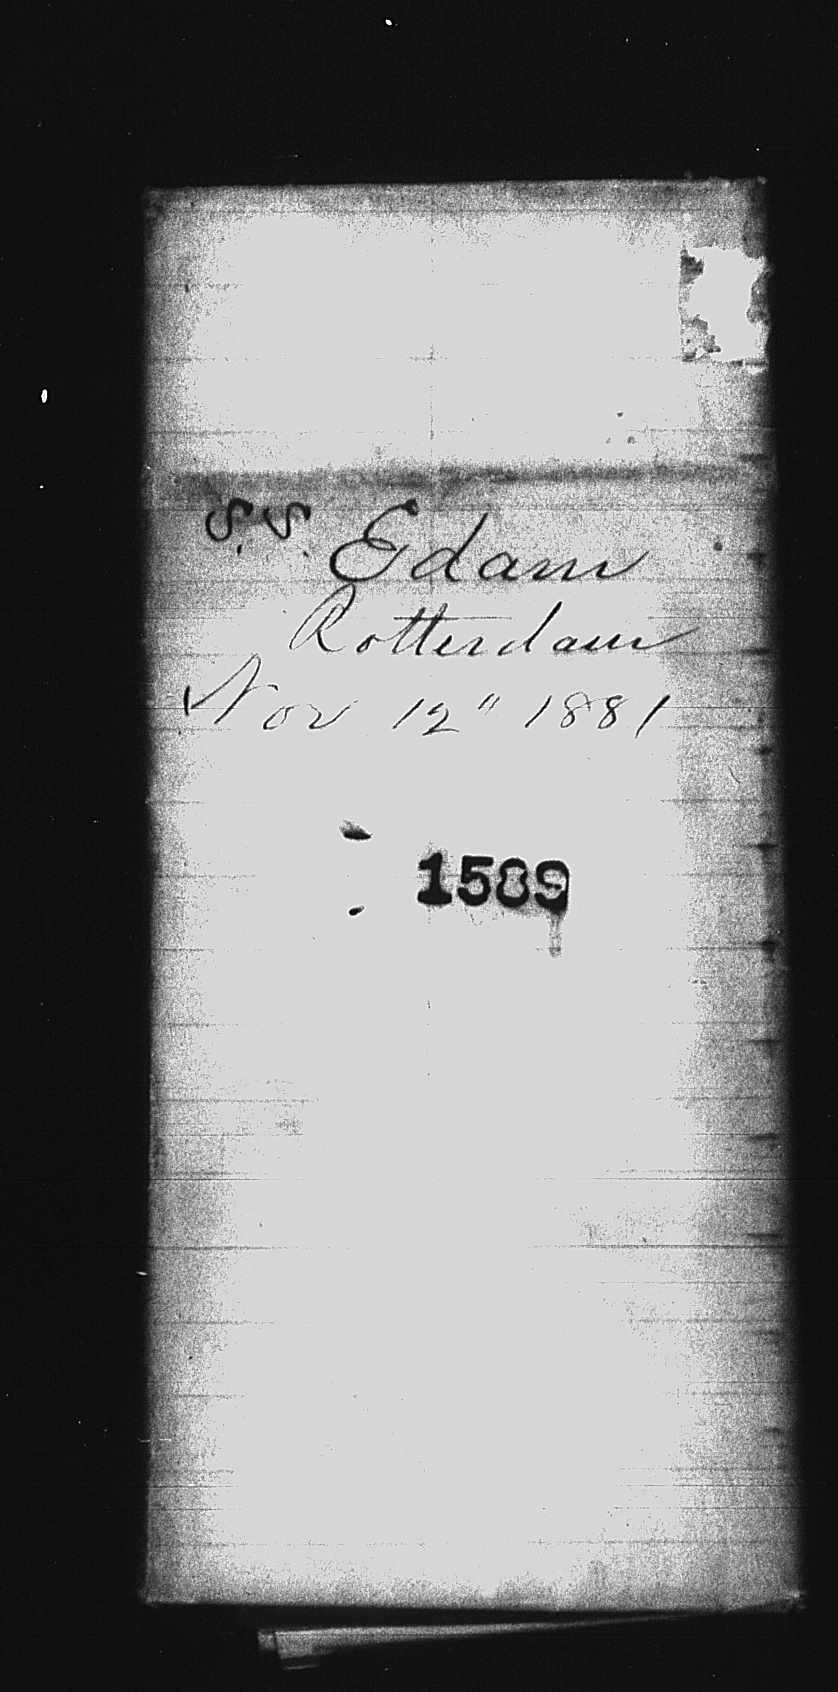 S.S. Edam
Rotterdam
Nov 12" 1881
1589